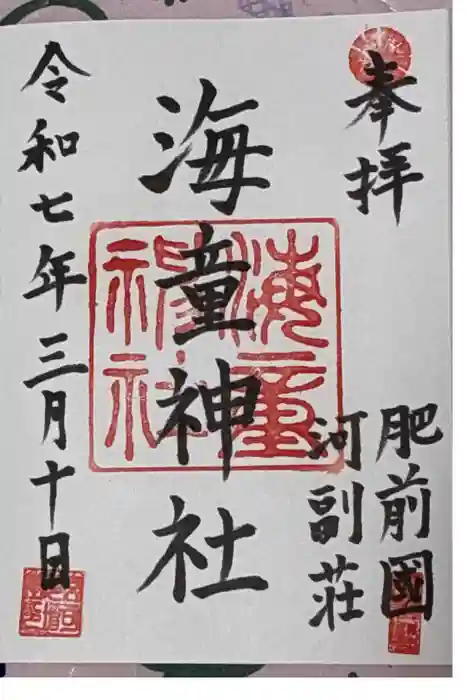 奉拝
肥前國
河副荘
海童神社
海童神社
令和七年三月十日